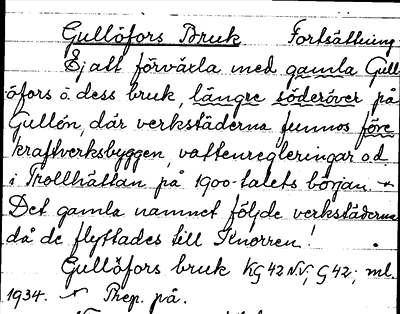 Gullöfors Bruk Fortsättning
Ej att förväxla med gamla Gull
öfors o. dess bruk, längre söderöver på
Gullön, där verkstäderna funnos före
kraftverksbyggen, vattenregleringar o d
i Trollhättan på 1900-talets början
Det gamla namnet följde verkstäderna
då de flyttades till Knorren!
Gullöfors bruk KG 42 NV, G 42; ml.
1934. Prep. på.